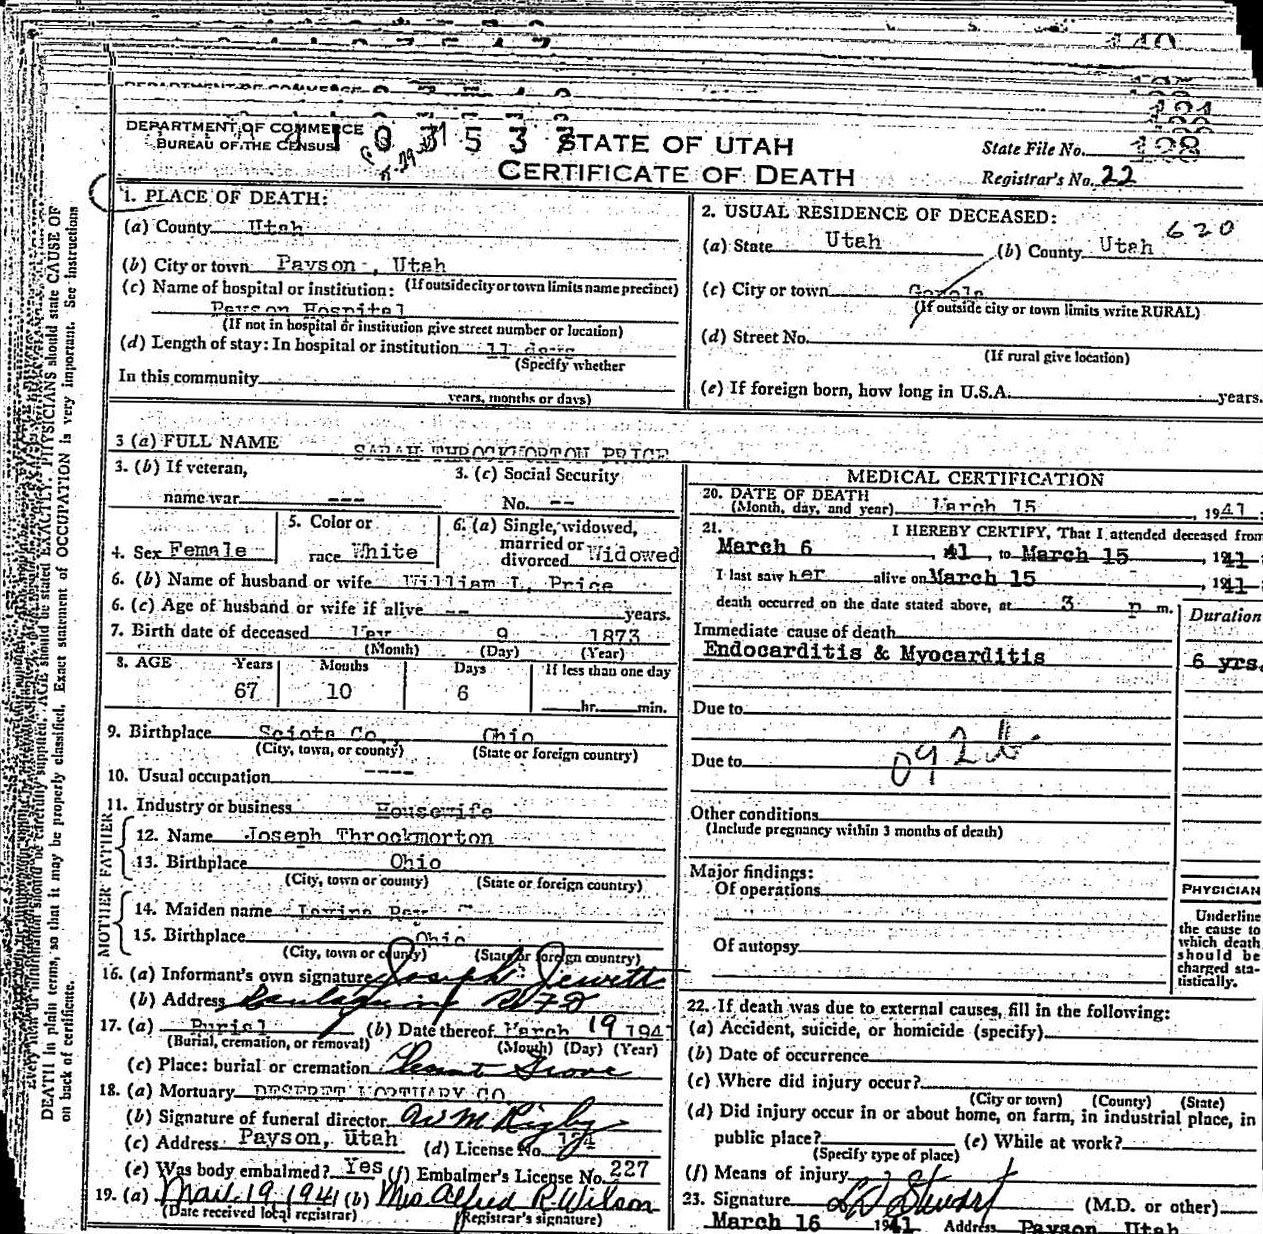 DEPARTMENT OF COMMERCE
BUREAU OF THE CENSUS
STATE OF UTAH
CERTIFICATE OF DEATH
State File No. 128
Registrar's No. 22
1. PLACE OF DEATH:
(a) County Utah
(b) City or town Payson, Utah
(If outside city or town limits name precinct)
(c) Name of hospital or institution:
Payson Hospital
(If not in hospital or institution give street number or location)
(d) Length of stay: In hospital or institution 11 days
(Specify whether
In this community
years, months or days)
2. USUAL RESIDENCE OF DECEASED:
620
(a) State Utah (b) County Utah
(c) City or town Genola
(If outside city or town limits write RURAL)
(d) Street No.
(If rural give location)
(e) If foreign born, how long in U.S.A. years.
3 (a) FULL NAME SARAH THROCKMORTON PRICE
3. (b) If veteran,
name war ---
3. (c) Social Security
No. --
4. Sex Female
5. Color or
race White
6. (a) Single, widowed,
married or
divorced Widowed
6. (b) Name of husband or wife William L. Price
6. (c) Age of husband or wife if alive -- years.
7. Birth date of deceased May 9 1873
(Month) (Day) (Year)
8. AGE Years Months Days If less than one day
67 10 6 hr. min.
9. Birthplace Sciota Co., Ohio
(City, town, or county) (State or foreign country)
10. Usual occupation ----
11. Industry or business Housewife
FATHER
12. Name Joseph Throckmorton
13. Birthplace Ohio
(City, town or county) (State or foreign country)
MOTHER
14. Maiden name
15. Birthplace Ohio
(City, town or county) (State or foreign country)
16. (a) Informant's own signature Joseph Jewett
(b) Address R F D
17. (a) Burial (b) Date thereof March 19 1941
(Burial, cremation, or removal) (Month) (Day) (Year)
(c) Place: burial or cremation Pleasant Grove
18. (a) Mortuary DESERET MORTUARY CO
(b) Signature of funeral director W M Rigby
(c) Address Payson, Utah (d) License No. 174
(e) Was body embalmed? Yes (f) Embalmer's License No. 227
19. (a) Mar. 19, 1941 (b) Mrs. Alfred R. Wilson
(Date received local registrar) (Registrar's signature)
MEDICAL CERTIFICATION
20. DATE OF DEATH
(Month, day, and year) March 15, 1941
21. I HEREBY CERTIFY, That I attended deceased from
March 6, 41, to March 15, 1941
I last saw her alive on March 15, 1941
death occurred on the date stated above, at 3 p m.
Duration
Immediate cause of death
Endocarditis & Myocarditis 6 yrs.
Due to
Due to
092
Other conditions
(Include pregnancy within 3 months of death)
Major findings:
Of operations
Of autopsy
PHYSICIAN
Underline
the cause to
which death
should be
charged sta-
tistically.
22. If death was due to external causes, fill in the following:
(a) Accident, suicide, or homicide (specify)
(b) Date of occurrence
(c) Where did injury occur?
(City or town) (County) (State)
(d) Did injury occur in or about home, on farm, in industrial place, in
public place? (e) While at work?
(Specify type of place)
(f) Means of injury
23. Signature L D Stewart (M.D. or other)
March 16 1941 Address Payson, Utah
DEATH in plain terms, so that it may be properly classified. Exact statement of OCCUPATION is very important. See instructions
on back of certificate.